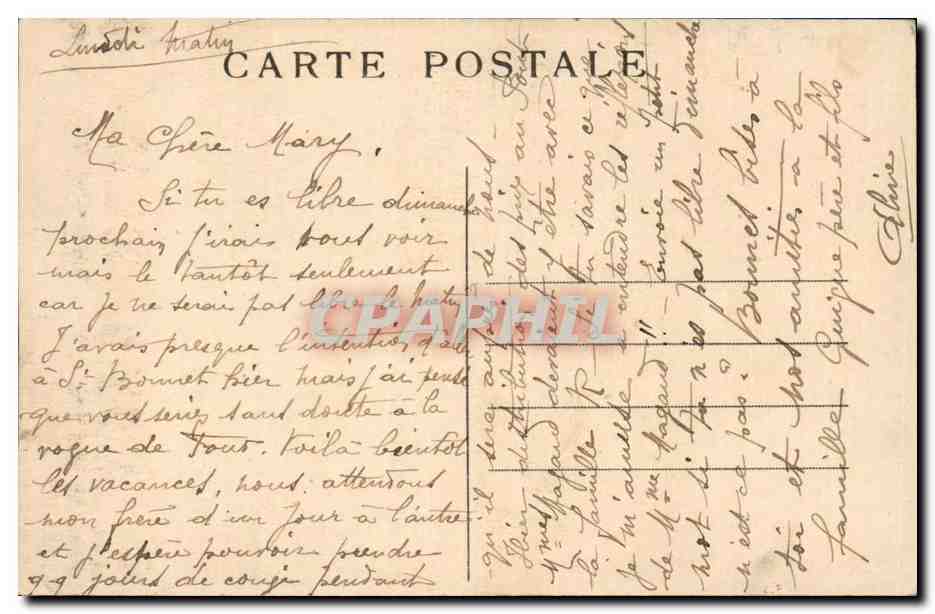 Lundi Matin
CARTE POSTALE
Ma Chère Mary,
Si tu es libre dimanche
prochain j'irais vous voir
mais le tantôt seulement
car je ne serai pas libre le matin
J'avais presque l'intention d'aller
à St Bonnet hier mais j'ai pensé
que vous seriez sans doute à la
vogue de Tour. Voilà bientôt
les vacances, nous attendons
mon frère d'un jour à l'autre
et j'espère pouvoir prendre
qq jours de congé pendant
qu'il sera auprès de nous -
Hier distribution des prix au Pont
Mmes Magaud devaient y être avec
la famille R - Si tu savais ce que
je m'amuse à entendre les réflexions
de Mme Magaud!! - Envoie un petit
mot si tu n'es pas libre Dimanche
n'est ce pas? Bonnes bises à
toi et nos amitiés à la
famille Guigue père et fils
CPAPHIL